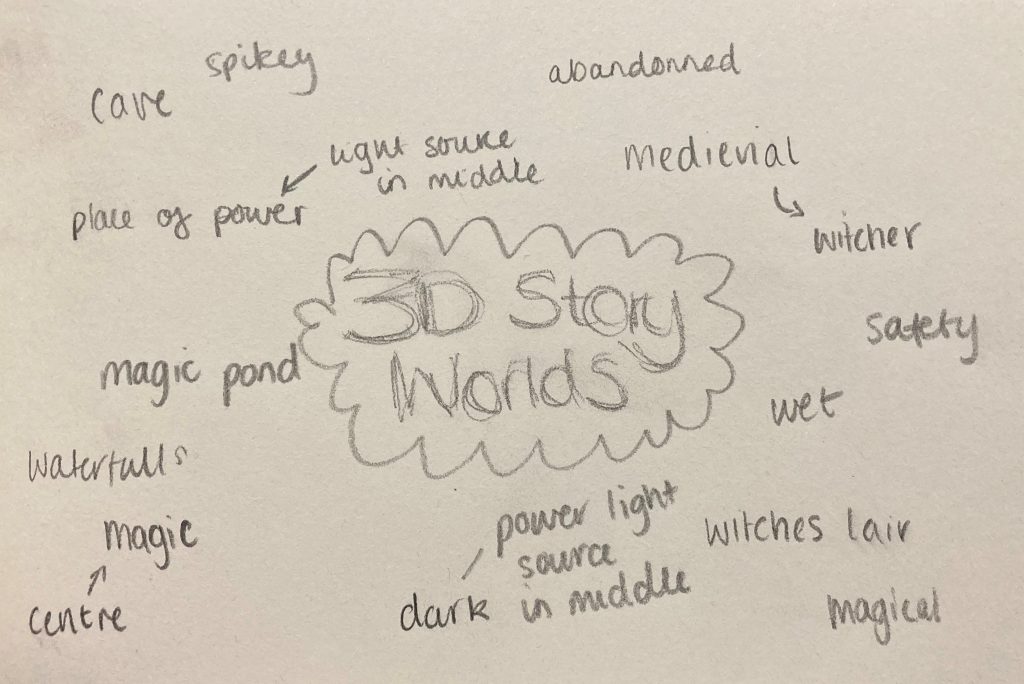 spikey
abandonned
cave
light source
in middle
medievial
place of power
witcher
3D Story
Worlds
safety
magic pond
wet
waterfalls
power light
source
in middle
magic
witches lair
centre
dark
magical